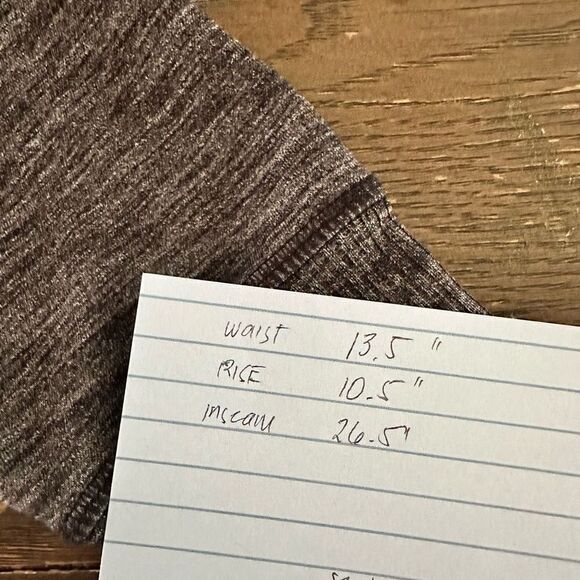 WAIST 13.5"
RISE 10.5"
Inseam 26.5"